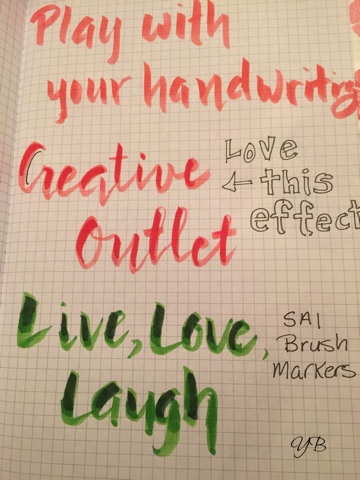 Play with
your handwriting
Creative
Outlet
Love
← this
effect
Live, Love,
Laugh
SAI
Brush
Markers
YB